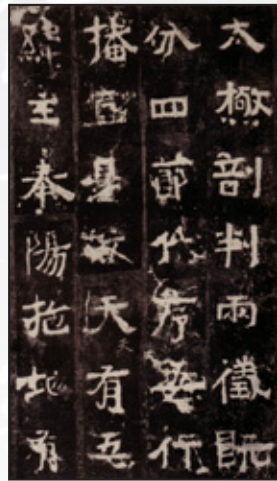 太極剖判兩儀既
分四節代序五行
播宣是故天有五
緯主奉陽施地有